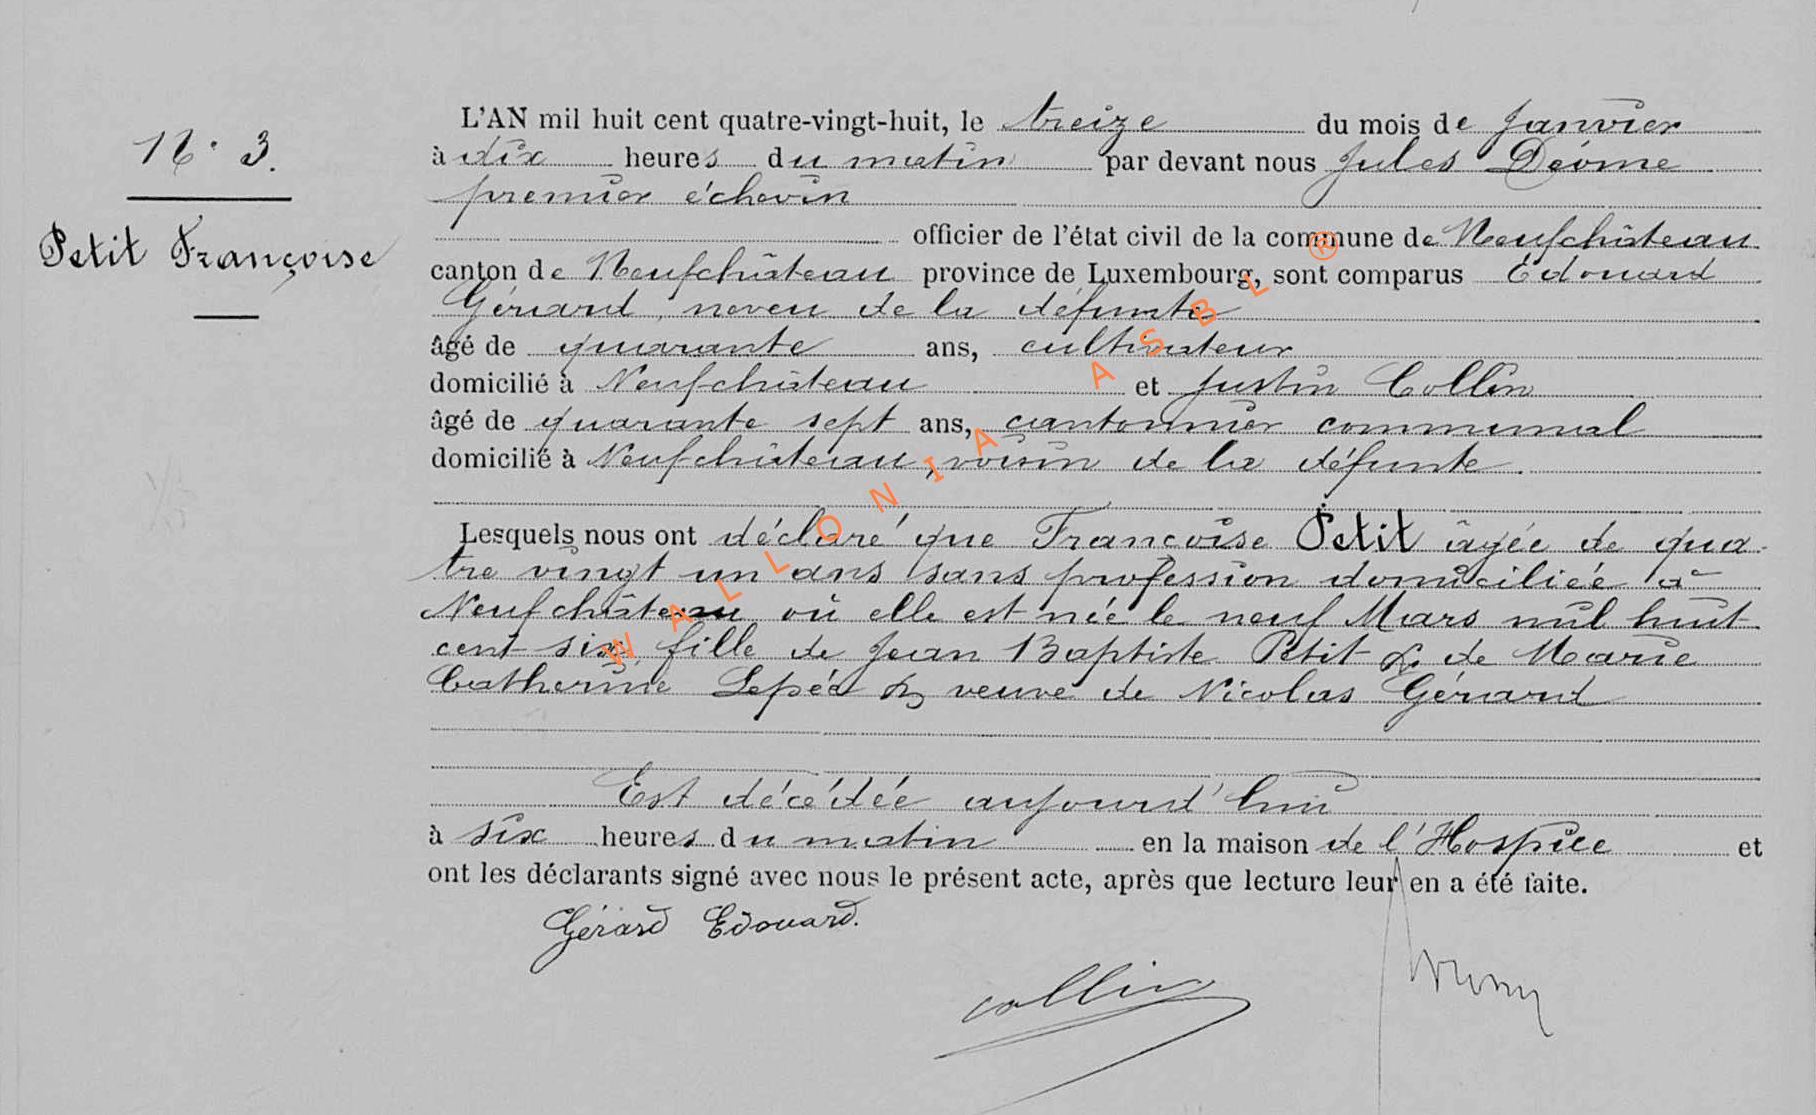 N° 3.
Petit Françoise
L'AN mil huit cent quatre-vingt-huit, le treize du mois de Janvier
à dix heures du matin par devant nous Jules Déome
premier échevin
officier de l'état civil de la commune de Neufchâteau
canton de Neufchâteau province de Luxembourg, sont comparus Edouard
Gérard, neveu de la défunte
âgé de quarante ans, cultivateur
domicilié à Neufchâteau et Justin Collin
âgé de quarante sept ans, cantonnier communal
domicilié à Neufchâteau, voisin de la défunte.
Lesquels nous ont déclaré que Françoise Petit âgée de qua-
tre vingt un ans sans profession domiciliée à
Neufchâteau où elle est née le neuf Mars mil huit
cent six, fille de Jean Baptiste Petit & de Marie
Catherine Lepée & veuve de Nicolas Gérard
Est décédée aujourd'hui
à six heures du matin en la maison de l'Hospice et
ont les déclarants signé avec nous le présent acte, après que lecture leur en a été faite.
Gérard Edouard.
collin
WALLONIA ASBL ®